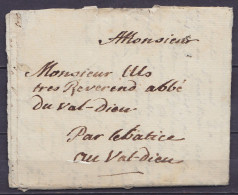 A Monsieur
Monsieur
tres Reverend abbé
du val-dieu
Par le batice
au val-dieu